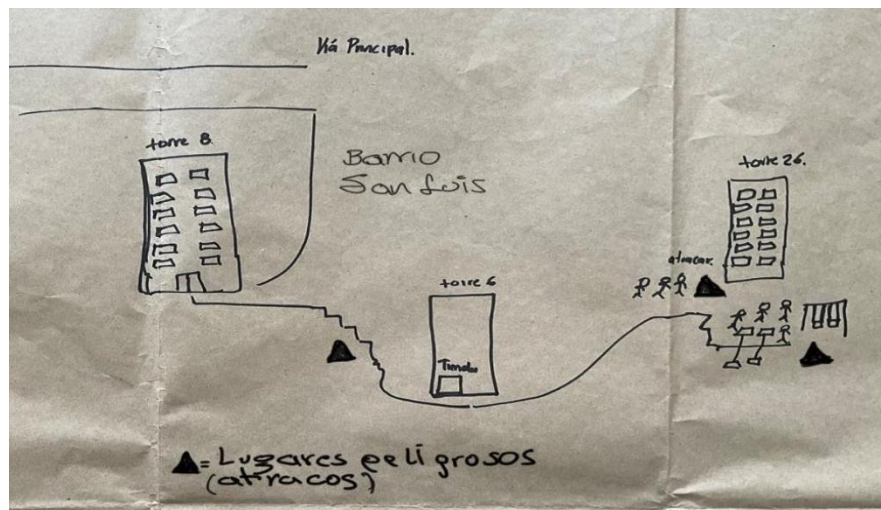 Vía Principal.
torre 8
Barrio
San Luis
torre 26.
atracar
torre 6
Tienda
▲ = Lugares peligrosos
(atracos)